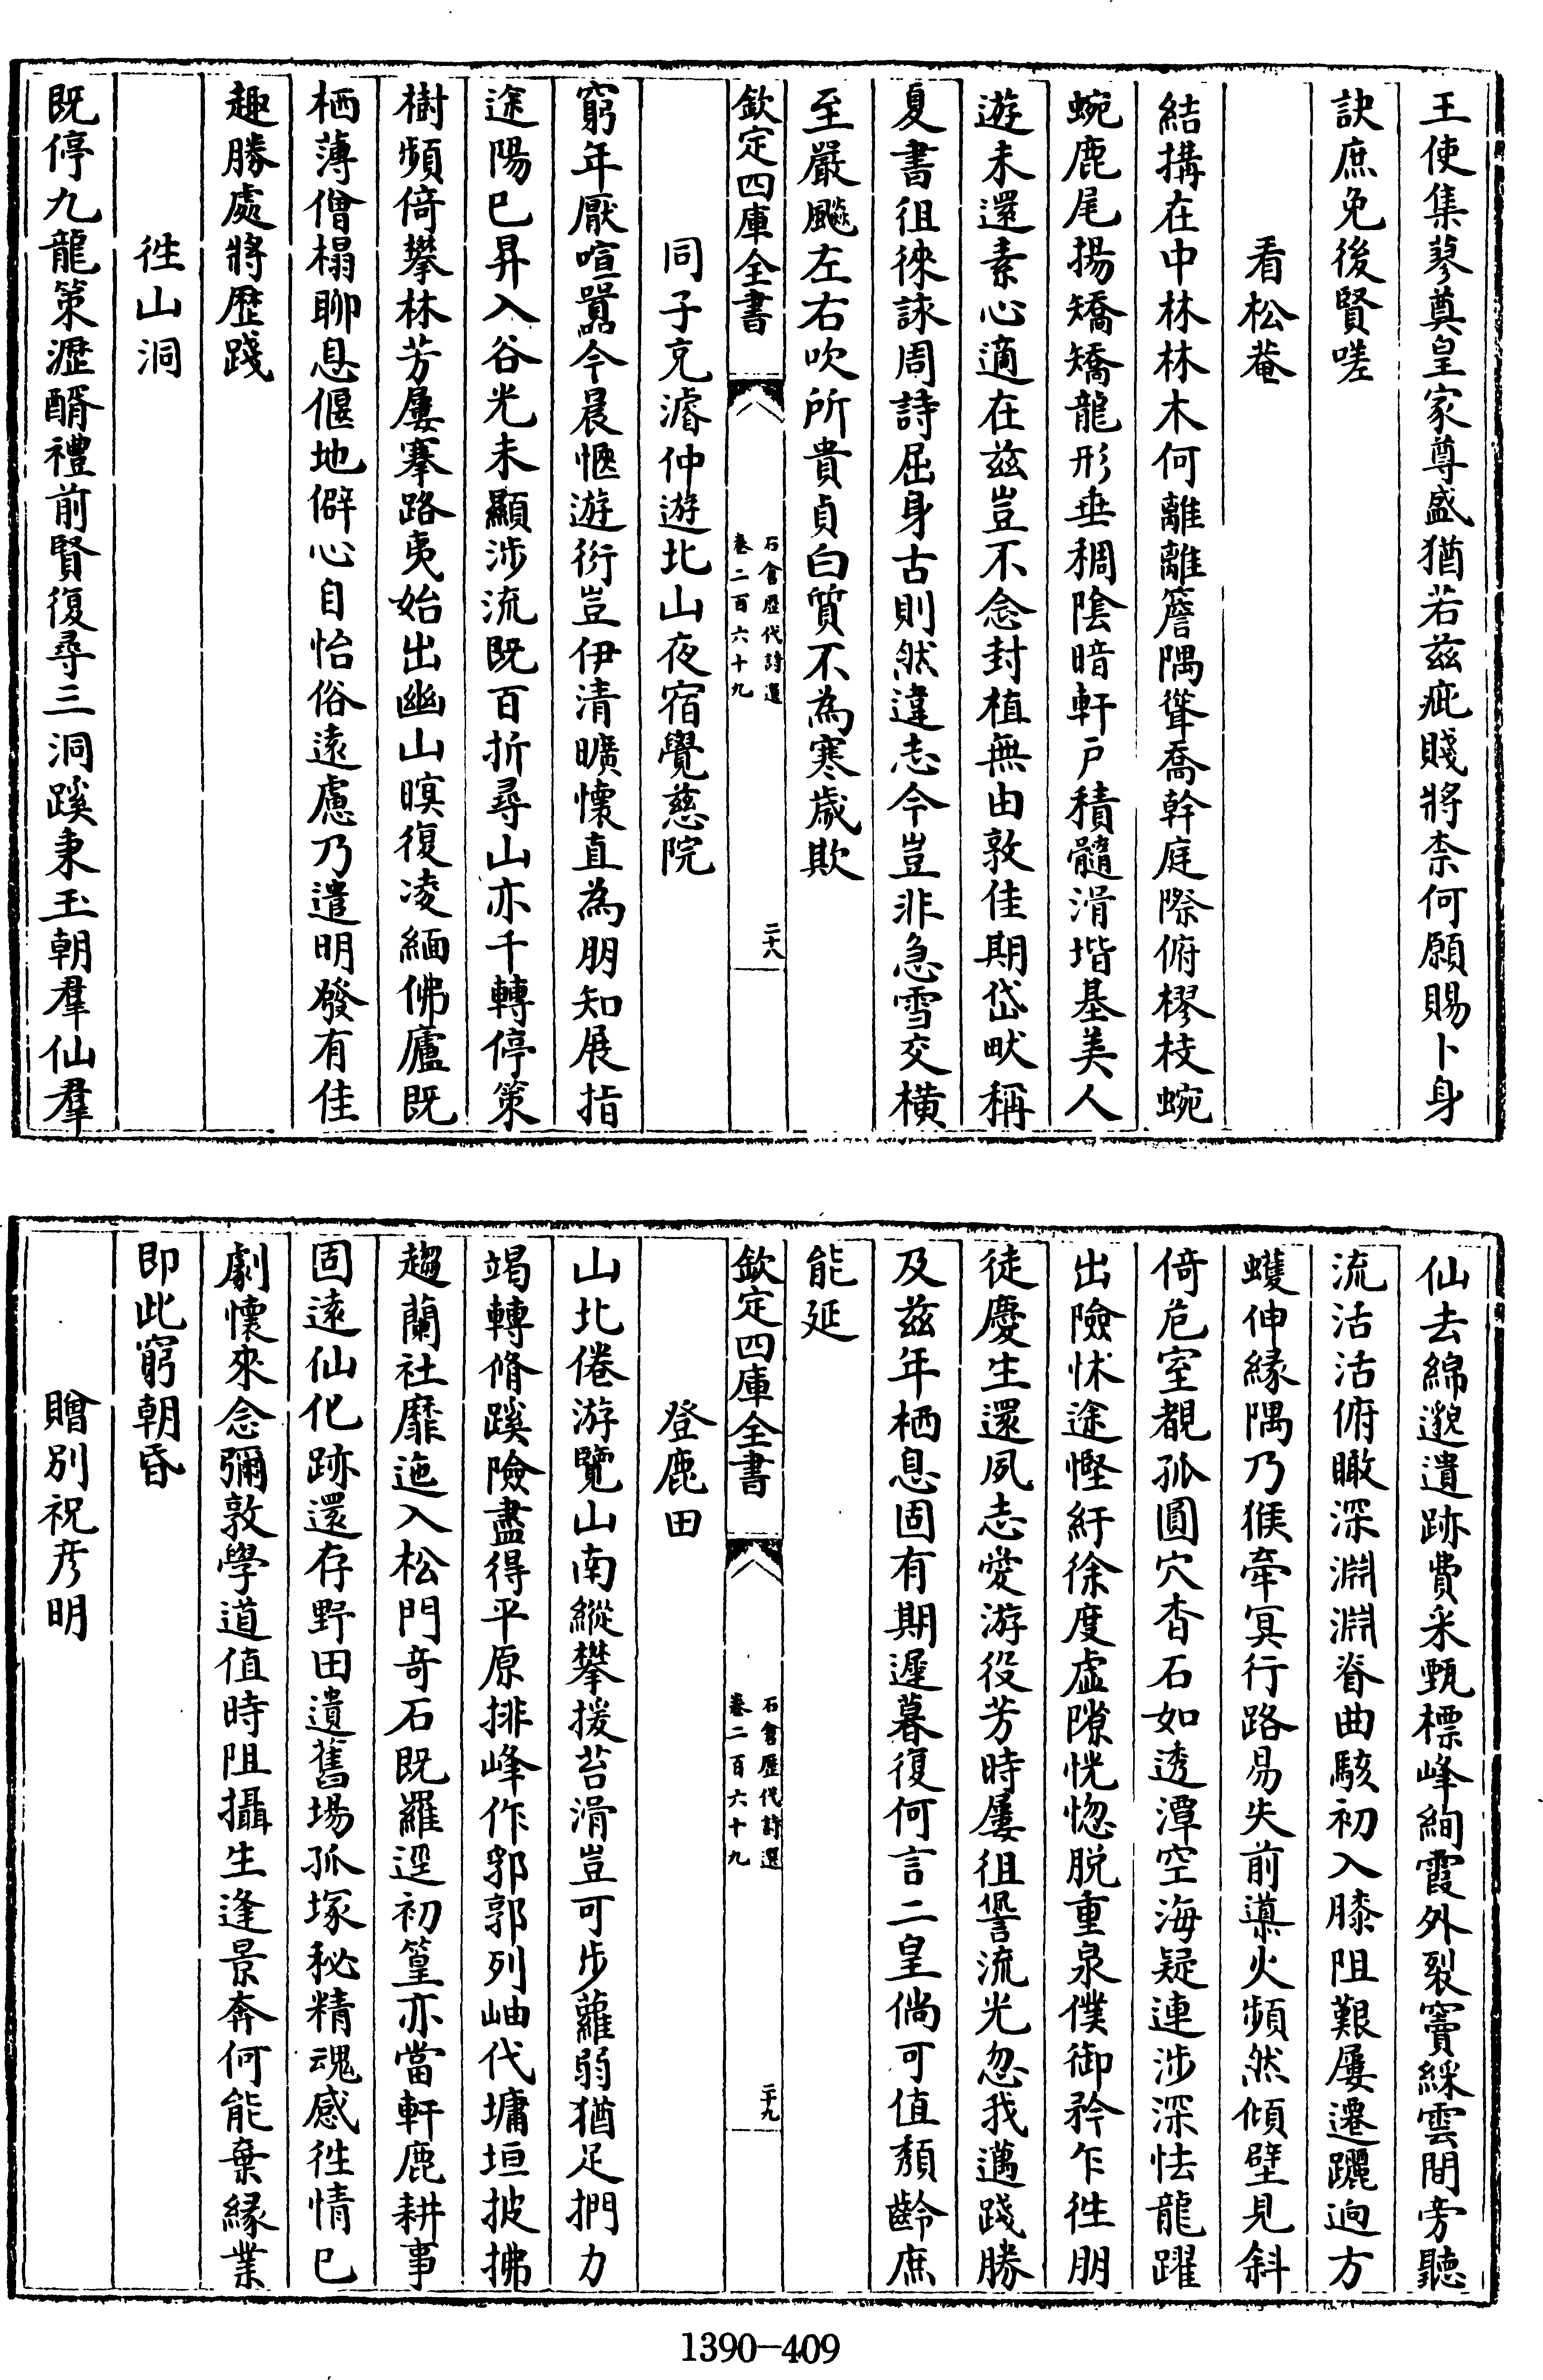 王使集蓼奠皇家尊盛猶若兹疵賤將柰何願賜卜身
訣庶免後賢嗟
看松菴
結搆在中林林木何離離簷隅聳喬幹庭際俯樛枝蜿
蜿鹿尾揚矯矯龍形垂稠陰暗軒户積髓滑堦基美人
遊未還素心適在兹豈不念封植無由敦佳期岱畎稱
夏書徂徠詠周詩屈身古則然違志今豈非急雪交横
至嚴飈左右吹所貴貞白質不為寒歲欺
欽定四庫全書
石倉歴代詩選
卷二百六十九
二十八
同子充濬仲遊北山夜宿覺慈院
窮年厭喧嚣今晨愜遊衍豈伊清曠懷直為朋知展指
途陽已昇入谷光未顯涉流既百折尋山亦千轉停策
樹頻倚攀林芳屢搴路夷始出幽山暝復凌緬佛廬既
栖薄僧榻聊息偃地僻心自怡俗遠慮乃遣明發有佳
趣勝處將歴踐
徃山洞
既停九龍策瀝醑禮前賢復尋三洞蹊秉玉朝羣仙羣
仙去綿邈遺跡費米甄標峰絢霞外裂竇綵雲間旁聽
流活活俯瞰深淵淵脊曲駭初入膝阻艱屢遷躧迥方
蠖伸縁隅乃猴牽冥行路易失前導火頻然傾壁見斜
倚危室覩孤圓穴杳石如透潭空海疑連涉深怯龍躍
出險怵途慳紆徐度虚隙恍惚脱重泉僕御矜乍徃朋
徒慶生還夙志爱游役芳時屢徂諐流光忽我邁踐勝
及兹年栖息固有期遲暮復何言二皇倘可值頽齡庶
能延
欽定四庫全書
石倉歴代詩選
卷二百六十九
二十九
登鹿田
山北倦游覽山南縱攀援苔滑豈可步蘿弱猶足捫力
竭轉脩蹊險盡得平原排峰作郛郭列岫代墉垣披拂
趨蘭社靡迤入松門竒石既羅逕初篁亦當軒鹿耕事
固遠仙化跡還存野田遺舊塲孤塚秘精魂感徃情已
劇懷來念彌敦學道值時阻攝生逢景奔何能棄縁業
即此窮朝昏
贈别祝彦明
1390-409